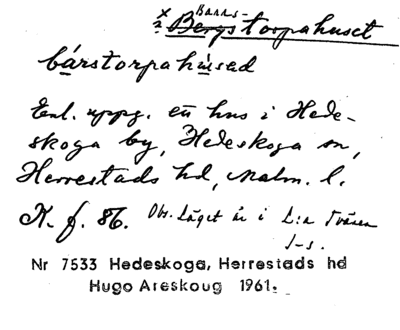 x Baans-
? Bergstorpahuset
bárstorpahúsəd
Enl. uppg. ett hus i Hede-
skoga by, Hedeskoga sn,
Herrestads hd, Malm. l.
K. f. 86. Obs. Läget är i L:a Tvären
J-s.
Nr 7533 Hedeskoga, Herrestads hd
Hugo Areskoug 1961.